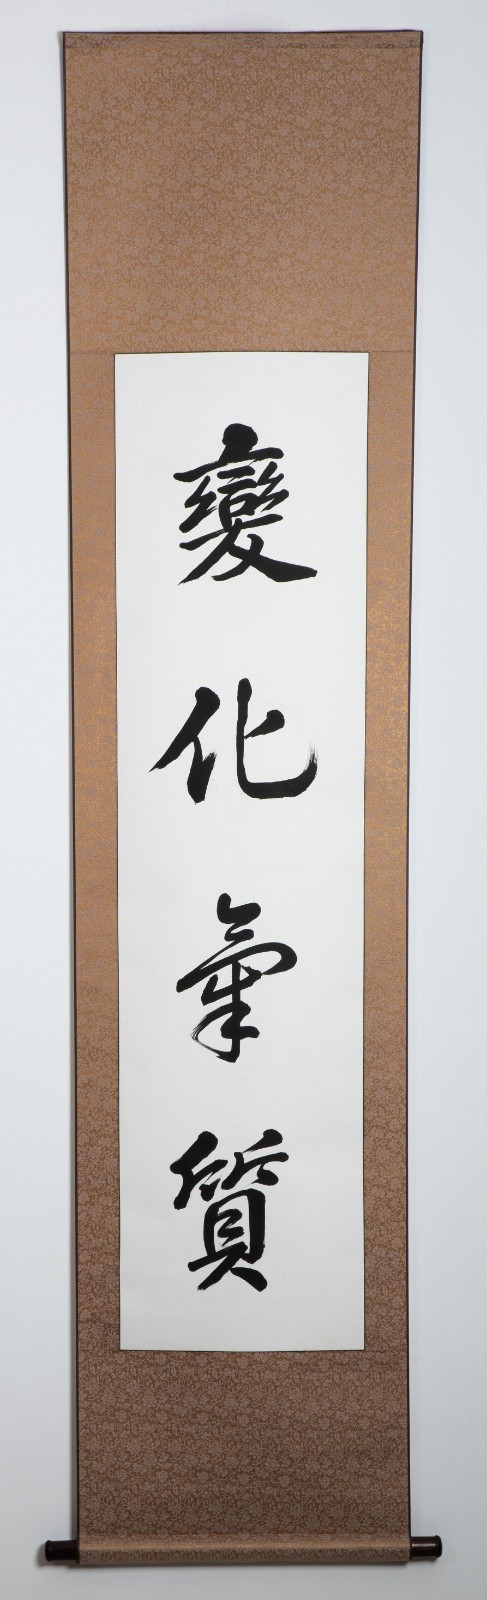 變化氣質